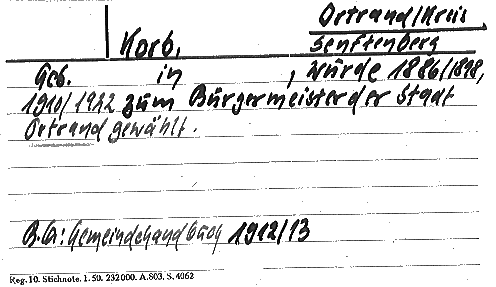 Ortrand/Kreis
Korb, Senftenberg
Geb. in , wurde 1886/1898,
1910/1922 zum Bürgermeister der Stadt
Ortrand gewählt.
B.A: Gemeindehandbuch 1912/13
Reg. 10. Stichnote. 1. 50. 232000. A. 803. S. 4062